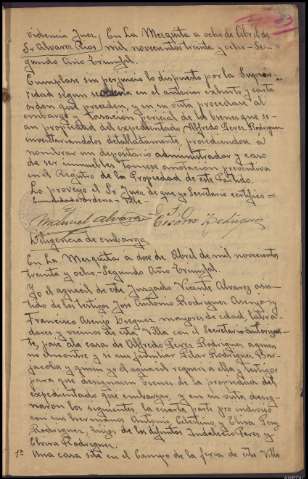 Providencia Juez, En La Mezquita a ocho de Abril de
Sr Alvarez Rios mil novecientos treinta y ocho - Se-
gundo Año Triunfal.
Cumplase sin perjuicio lo dispuesto por la Superio-
ridad según se ordena en el anterior exhorto y carta
orden que preceden, y en su vista procedase al
embargo y tasación pericial de los bienes que se-
an propiedad del expedientado Alfredo Perez Rodriguez
inventariandolos detalladamente, procediendo a
nombrar un depositario administrador y caso
de ser inmuebles tomese anotación preventiva
en el Registro de la Propiedad de este Partido.
Lo proveyó el Sr Juez de que yo Secretario certifico -
Enmendado = ordena = Vale
Manuel Alvarez
Diligencia de embargo
En La Mezquita a doce de Abril de mil novecientos
treinta y ocho - Segundo Año Triunfal.
Yo el aguacil de este Juzgado Vicente Alvarez asis-
tido de los testigos Jose Antonio Rodriguez Asenjo y
Francisco Asenjo Dieguez mayores de edad labra-
dores y vecinos de esta Villa con el Secretario autorizan-
te, pasé a la casa de Alfredo Perez Rodriguez a quien
no encontré y si a su familiar Pilar Rodriguez Bar-
jacoba y quien yo el aguacil requerí a ella y testigos
para que designaren bienes de la propiedad del
expedientado que embargar, y en su vista desig-
naron los siguientes, la cuarta parte pro indivisa
con sus hermanos Antonio Celestino y Elvira Perez
Rodriguez, hijos de los difuntos Indalecio Perez y
Elvira Rodriguez.
Una casa sita en el Campo de la feria de esta Villa